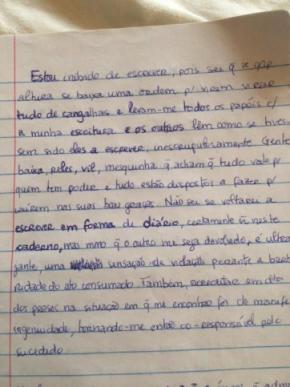 Estou inibido de escrever, pois sei q̃ a qqr
altura se baixa uma ordem p/ virem virar
tudo de cangalhas e levam-me todos os papéis c/
a minha escritura e os outros lêm como se tives
sem sido eles a escrever, inescrupulosamente. Gente
baixa, reles, vil, mesquinha q̃ acham q̃ tudo vale p/
quem tem poder e tudo estão dispostos a fazer p/
caírem nas suas boas graças. Não sei se voltarei a
escrever em forma de diário, certamente ñ neste
caderno, mas mmo q̃ o outro me seja devolvido, é ultra
jante, uma sensação de violação perante a barba
ridade do ato consumado. Também,
dos presos na situação em q̃ me encontro foi de
ingenuidade, tornando-me então co-responsável pelo
sucedido